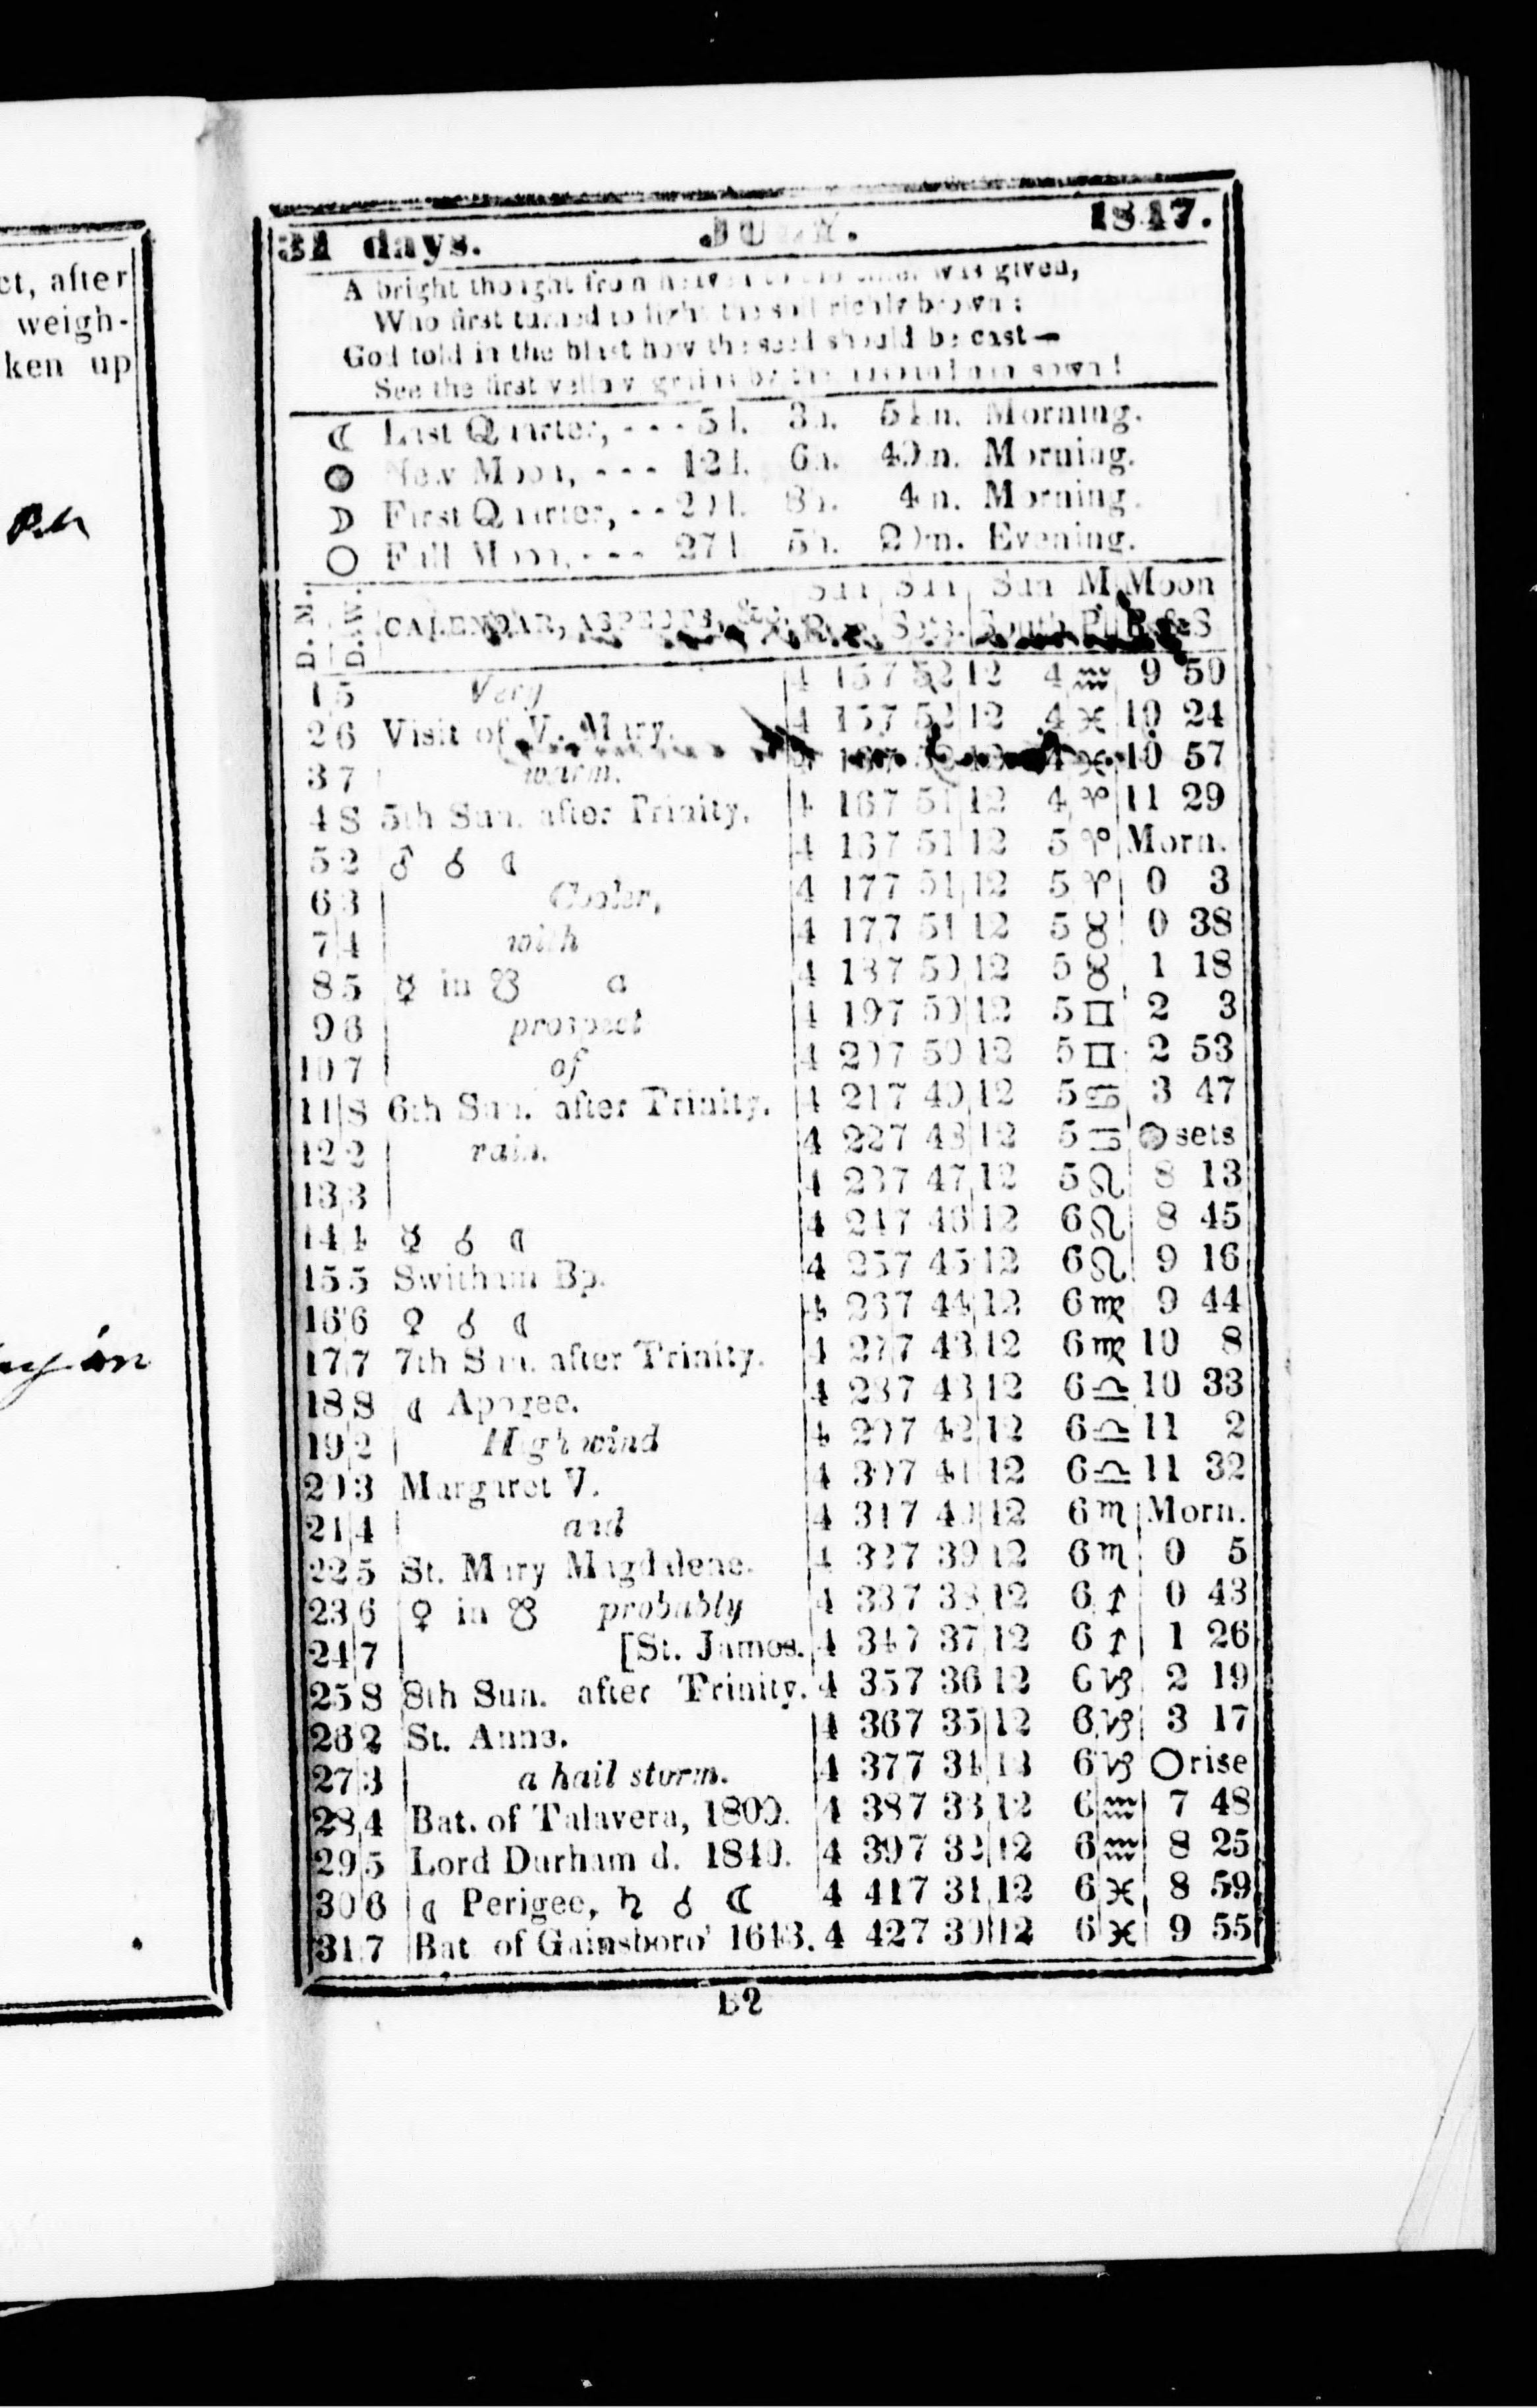 ct, after
weigh-
ken up
31 days. JULY. 1847.
A bright thought from heaven to the was given,
Who first turned to light the soil richly brown:
God told in the blast how the seed should be cast—
See the first yellow grains by the sown!
☾ Last Quarter, - - - 5d. 3h. 54m. Morning.
● New Moon, - - - 12d. 6h. 40m. Morning.
☽ First Quarter, - - 20d. 8h. 4m. Morning.
○ Full Moon, - - - 27d. 5h. 20m. Evening.
D. M. D. W. CALENDAR, ASPECTS, &c. Sun Rises Sun Sets. Sun South M Pl Moon R. & S
1 5 Very 4 15 7 52 12 4 ♒ 9 50
2 6 Visit of V. Mary. 4 15 7 52 12 4 ♓ 10 24
3 7 warm. 4 ♓ 10 57
4 S 5th Sun. after Trinity. 4 16 7 51 12 4 ♈ 11 29
5 2 ♂ ☌ ☾ 4 16 7 51 12 5 ♈ Morn.
6 3 Cooler, 4 17 7 51 12 5 ♈ 0 3
7 4 with 4 17 7 51 12 5 ♉ 0 38
8 5 ☿ in ☋ a 4 18 7 50 12 5 ♉ 1 18
9 6 prospect 4 19 7 50 12 5 ♊ 2 3
10 7 of 4 20 7 50 12 5 ♊ 2 53
11 S 6th Sun. after Trinity. 4 21 7 49 12 5 ♋ 3 47
12 2 rain. 4 22 7 48 12 5 ♋ ● sets
13 3 4 23 7 47 12 5 ♌ 8 13
14 4 ☿ ☌ ☾ 4 24 7 46 12 6 ♌ 8 45
15 5 Swithun Bp. 4 25 7 45 12 6 ♌ 9 16
16 6 ♀ ☌ ☾ 4 26 7 44 12 6 ♍ 9 44
17 7 7th Sun. after Trinity. 4 27 7 43 12 6 ♍ 10 8
18 S ☾ Apogee. 4 28 7 43 12 6 ♎ 10 33
19 2 High wind 4 29 7 42 12 6 ♎ 11 2
20 3 Margaret V. 4 30 7 41 12 6 ♎ 11 32
21 4 and 4 31 7 40 12 6 ♏ Morn.
22 5 St. Mary Magdalene. 4 32 7 39 12 6 ♏ 0 5
23 6 ♀ in ☋ probably 4 33 7 38 12 6 ♐ 0 43
24 7 [St. James. 4 34 7 37 12 6 ♐ 1 26
25 S 8th Sun. after Trinity. 4 35 7 36 12 6 ♑ 2 19
26 2 St. Anne. 4 36 7 35 12 6 ♑ 3 17
27 3 a hail storm. 4 37 7 34 12 6 ♑ ○ rise
28 4 Bat. of Talavera, 1809. 4 38 7 33 12 6 ♒ 7 48
29 5 Lord Durham d. 1840. 4 39 7 32 12 6 ♒ 8 25
30 6 ☾ Perigee, ♄ ☌ ☾ 4 41 7 31 12 6 ♓ 8 59
31 7 Bat of Gainsboro' 1643. 4 42 7 30 12 6 ♓ 9 55
B2